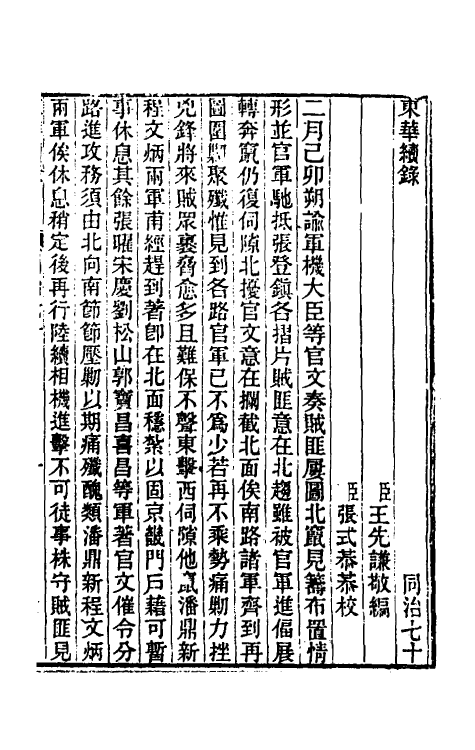 東華續錄　同治七十
臣王先謙敬編
臣張式恭恭校
二月己卯朔諭軍機大臣等官文奏賊匪屢圖北竄見籌布置情
形並官軍馳抵張登鎮各摺片賊匪意在北趨雖被官軍進偪展
轉奔竄仍復伺隙北擾官文意在攔截北面俟南路諸軍齊到再
圖圍剿聚殲惟見到各路官軍已不爲少若再不乘勢痛剿力挫
兇鋒將來賊眾裹脅愈多且難保不聲東擊西伺隙他竄潘鼎新
程文炳兩軍甫經趕到著卽在北面穩紮以固京畿門戶藉可暫
事休息其餘張曜宋慶劉松山郭寶昌喜昌等軍著官文催令分
路進攻務須由北向南節節壓剿以期痛殲醜類潘鼎新程文炳
兩軍俟休息稍定後再行陸續相機進擊不可徒事株守賊匪見